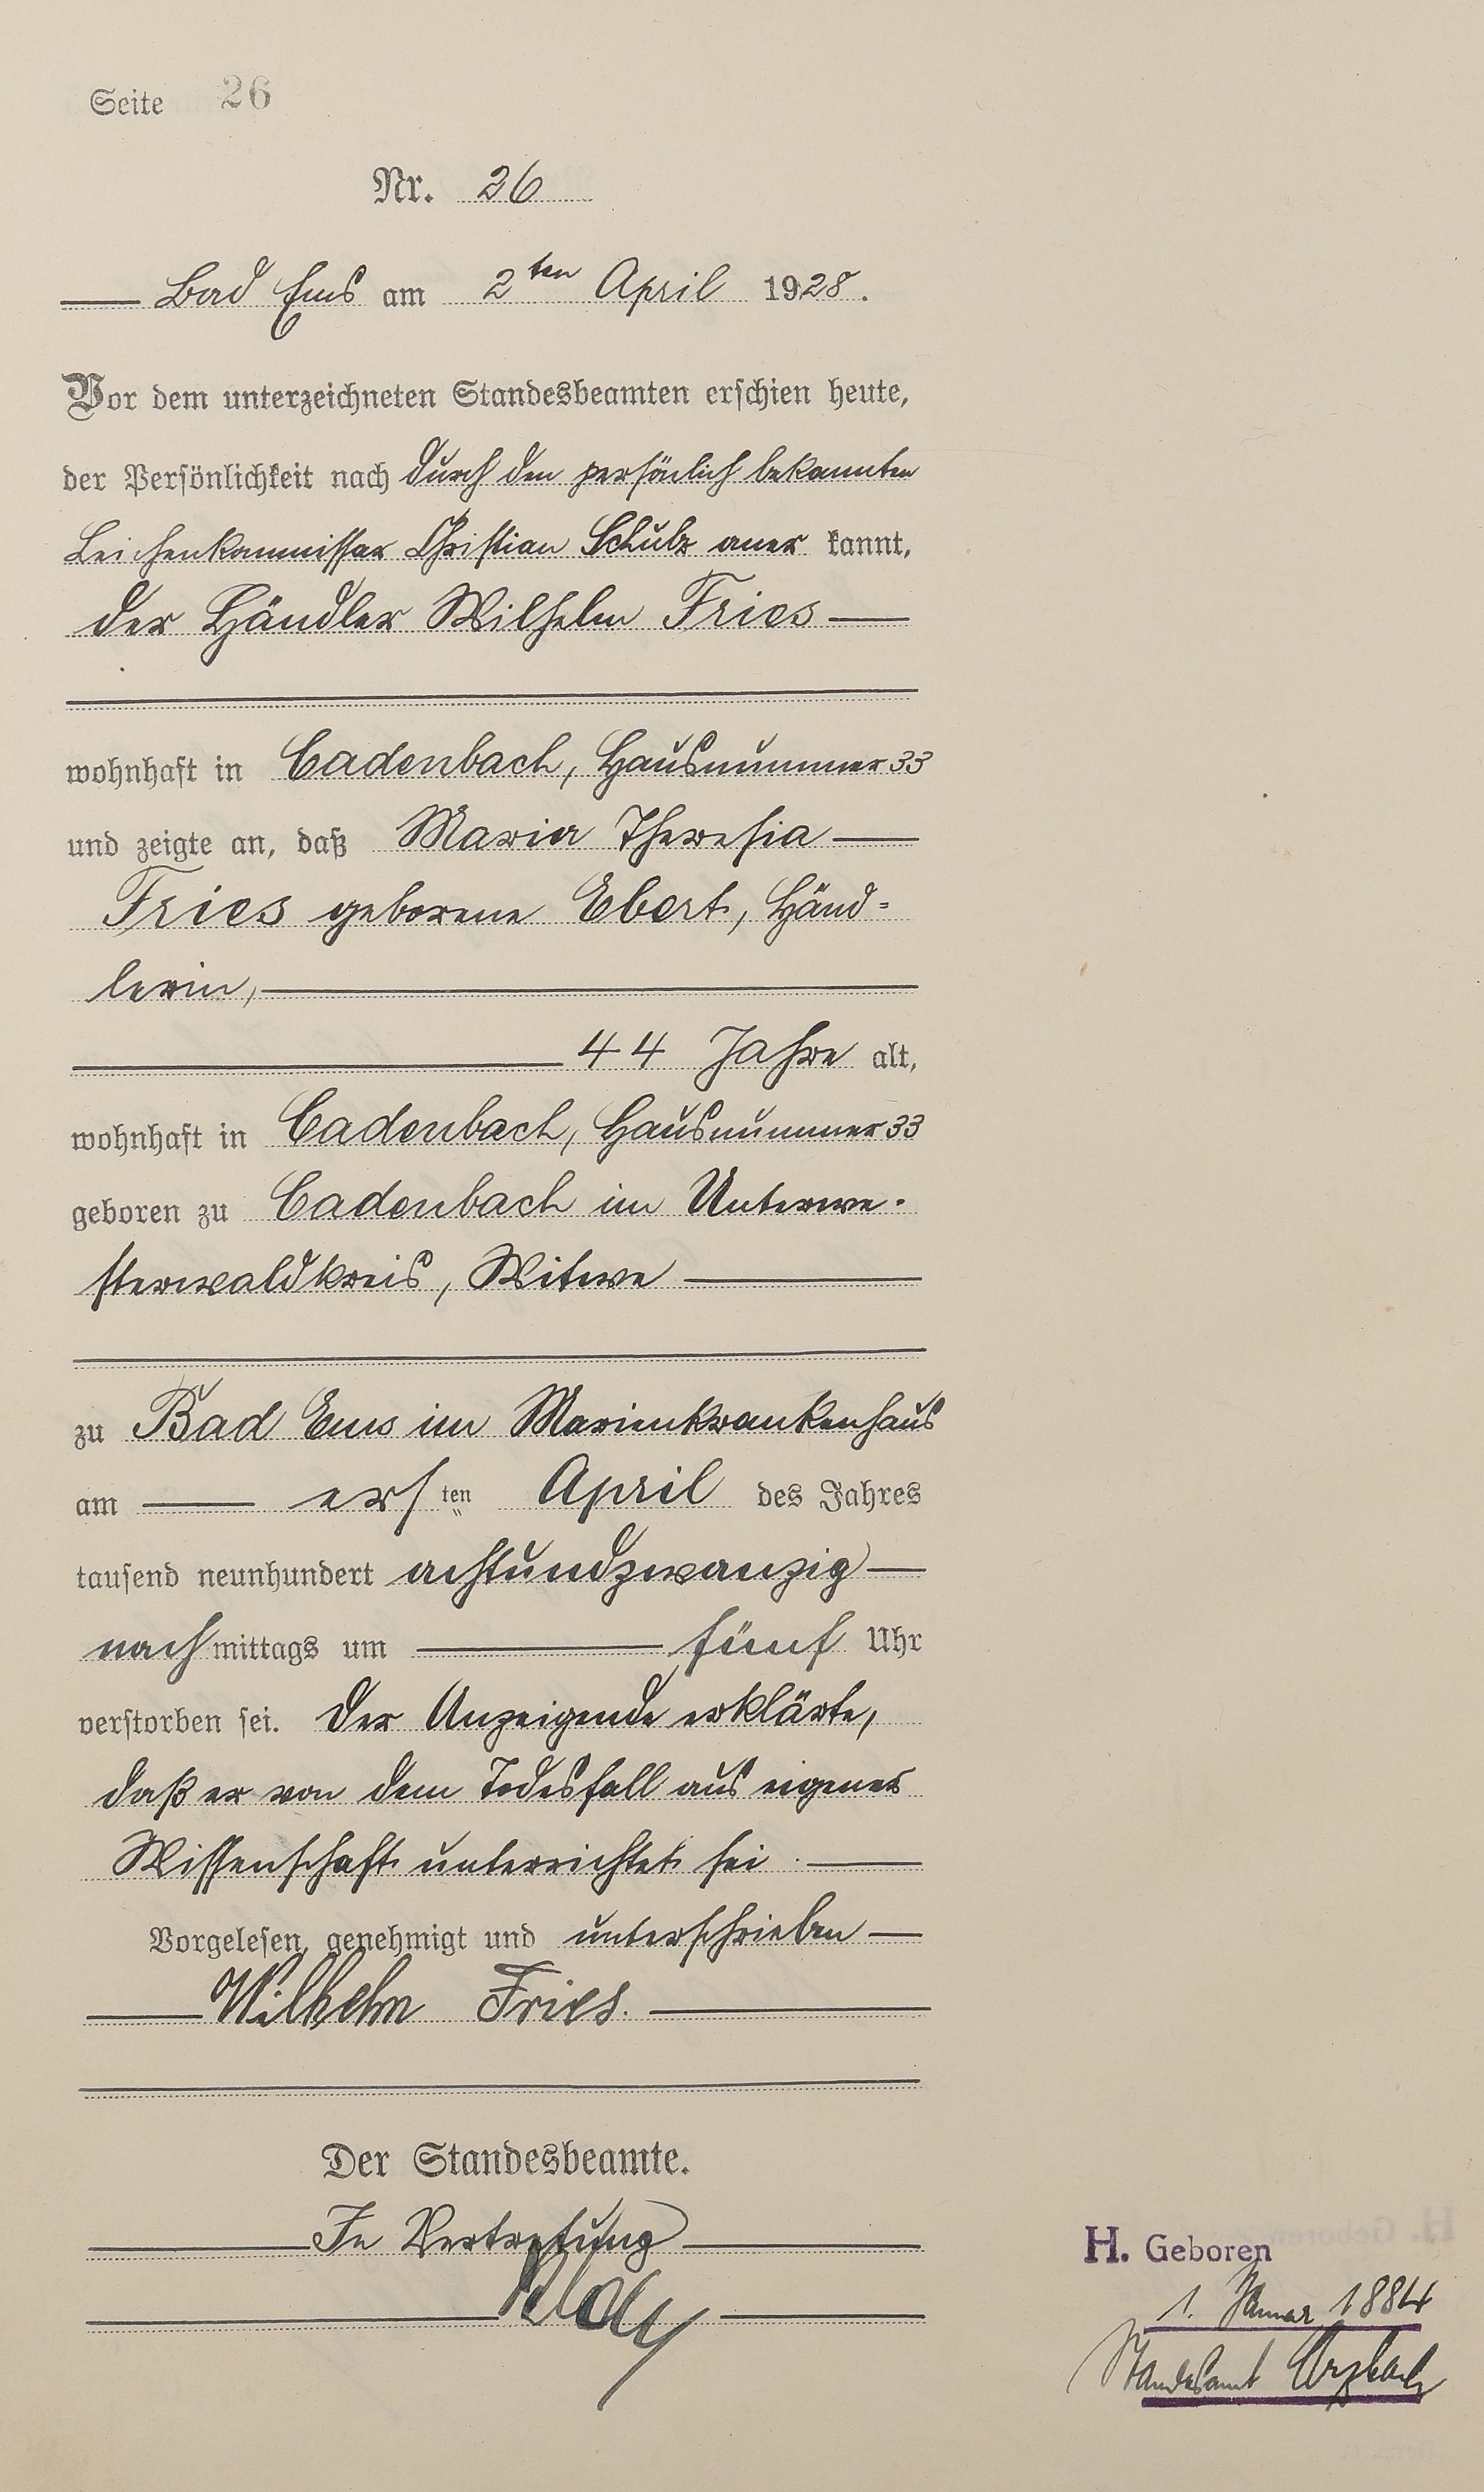 Seite 26
Nr. 26
Bad Ems am 2ten April 1928.
Vor dem unterzeichneten Standesbeamten erschien heute,
der Persönlichkeit nach durch den persönlich bekannten
Leichenkommissar Christian Schulz aner kannt,
der Händler Wilhelm Fries
wohnhaft in Cadenbach, Hausnummer 33
und zeigte an, daß Maria Theresia
Fries geborene Ebert, Händ=
lerin,
44 Jahre alt,
wohnhaft in Cadenbach, Hausnummer 33
geboren zu Cadenbach im Unterwe-
sterwaldkreis, Witwe
zu Bad Ems im Marienkrankenhaus
am ersten April des Jahres
tausend neunhundert achtundzwanzig
nachmittags um fünf Uhr
verstorben sei. Der Anzeigende erklärte,
daß er von dem Todesfall aus eigener
Wissenschaft unterrichtet sei.
Vorgelesen, genehmigt und unterschrieben
Wilhelm Fries.
Der Standesbeamte.
In Vertretung
H. Geboren
1. Januar 1884
Standesamt Arzbach